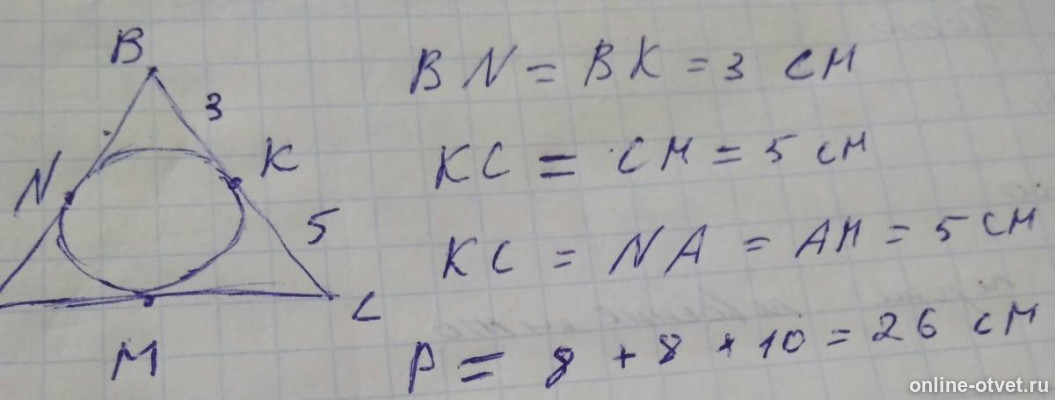 B
3
N
K
5
C
M
BN = BK = 3 см
KC = CM = 5 см
KC = NA = AM = 5 см
P = 8 + 8 + 10 = 26 см
online-otvet.ru